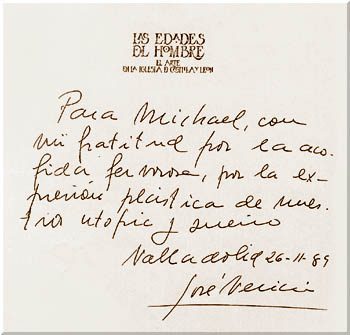 LAS EDADES
DEL HOMBRE
EL ARTE
EN LA IGLESIA DE CASTILLA Y LEON
Para Michael, con
mi gratitud por la aco-
gida fervorosa, por la ex-
presión plástica de nues-
tra utopía y sueño
Valladolid 26-11-89
José Velicia